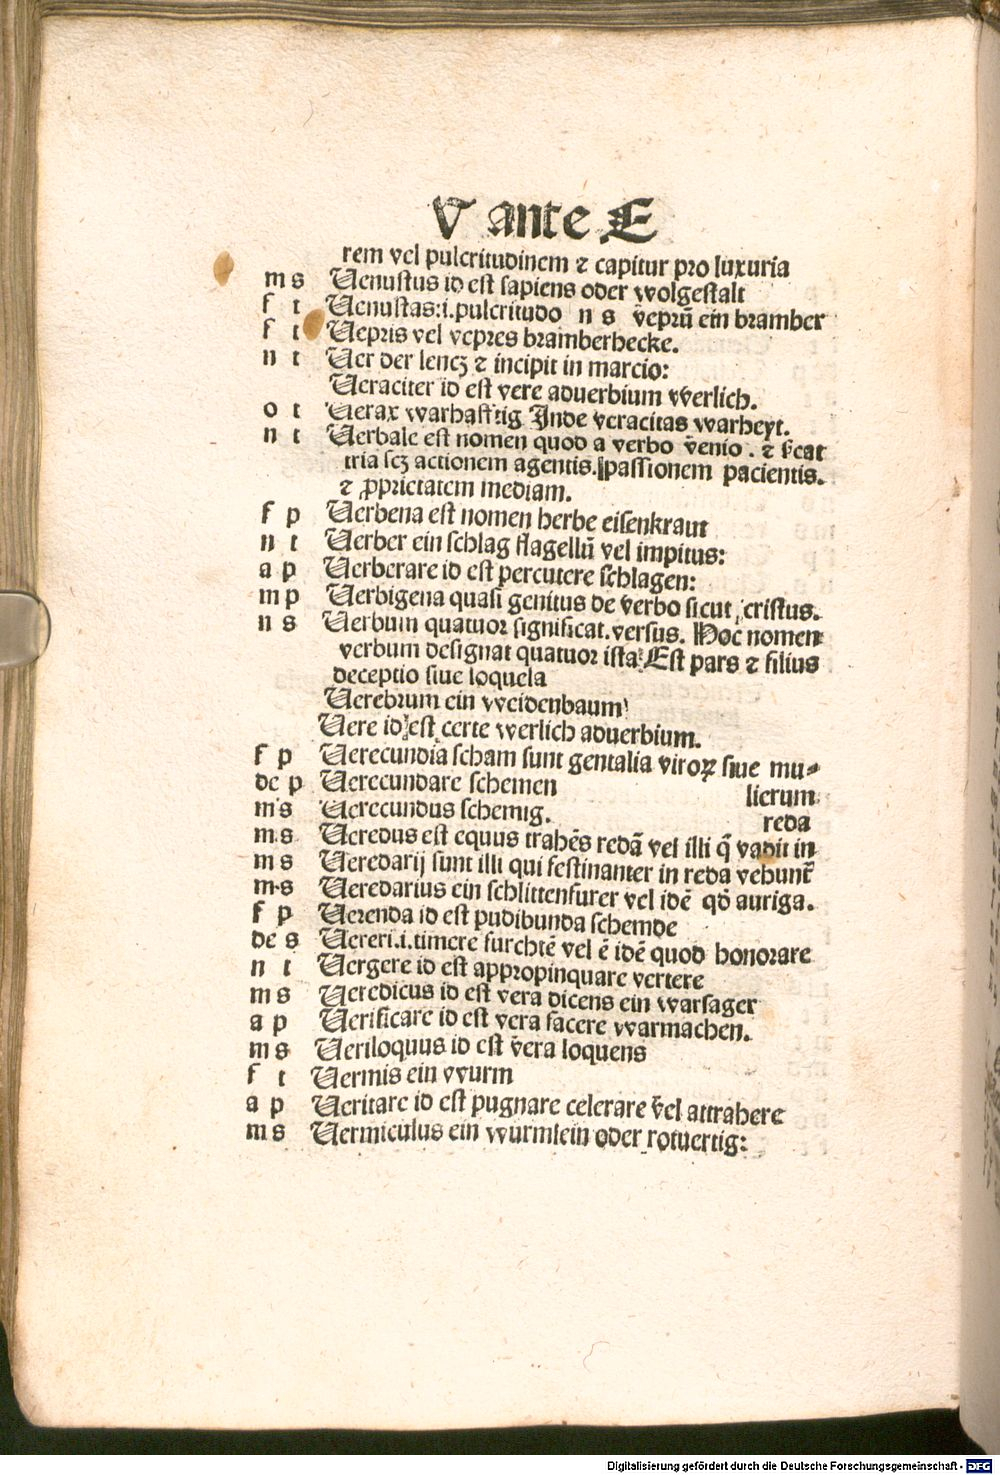 V ante E
rem vel pulcritudinem ⁊ capitur pro luxuria
m s Uenustus id est sapiens oder wolgestalt
f t Uenustas:i.pulcritudo n s v̄eprū ein bramber
f t Uepris vel vepres bramberhecke.
n t Uer der lencz ⁊ incipit in marcio:
Ueraciter id est vere aduerbium werlich.
o t Uerax warhafftig Inde veracitas warheyt.
n t Uerbale est nomen quod a verbo v̄enio . ⁊ s̄cat
tria scz actionem agentis. passionem pacientis.
⁊ ꝓprietatem mediam.
f p Uerbena est nomen herbe eisenkraut
n t Uerber ein schlag flagellū vel impitus:
a p Uerberare id est percutere schlagen:
m p Uerbigena quasi genitus de verbo sicut cristus.
n s Uerbum quatuor significat.versus. Hoc nomen
verbum designat quatuor ista:Est pars ⁊ filius
deceptio siue loquela
Uerebrum ein weidenbaum
Uere id est certe werlich aduerbium.
f p Uerecundia scham sunt genitalia viroꝝ siue mu-
de p Uerecundare schemen lierum
m s Uerecundus schemig. reda
m s Ueredus est equus trahēs redā vel illi q̄ vadit in
m s Ueredarij sunt illi qui festinanter in reda vehunt̄
m s Ueredarius ein schlittenfurer vel idē qd̄ auriga.
f p Uerenda id est pudibunda schemde
de s Uereri.i.timere furchtē vel ē idē quod honorare
n t Uergere id est appropinquare vertere
m s Ueredicus id est vera dicens ein warsager
a p Uerificare id est vera facere warmachen.
m s Ueriloquus id est v̄era loquens
f t Uermis ein wurm
a p Ueritare id est pugnare celerare v̄el attrahere
m s Uermiculus ein wurmlein oder rotuertig:
Digitalisierung gefördert durch die Deutsche Forschungsgemeinschaft - DFG